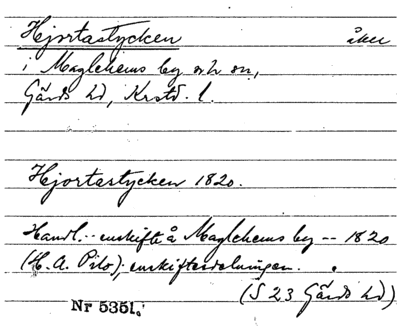 Hjortastycken åker
i Maglehems by och sn,
Gärds hd, Krstd. l.
Hjortastycken 1820.
Handl. -- enskifte å Maglehems by -- 1820
(H. A. Pilo); enskiftesdelningen.
(S 23 Gärds hd)
Nr 5351.